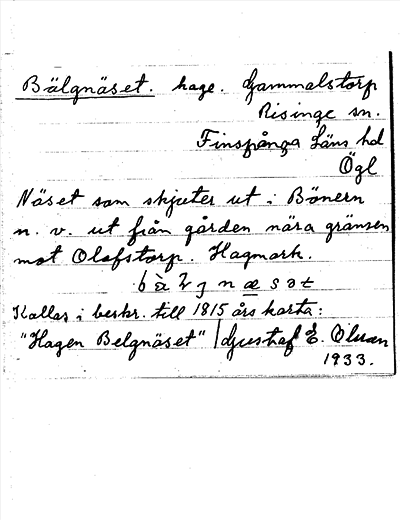 Bälgnäset. hage. Gammalstorp
Risinge sn.
Finspånga Läns hd
Ögl
Näset som skjuter ut i Bönern
n. v. ut från gården nära gränsen
mot Olofstorp. Hagmark.
Kallas i beskr. till 1815 års karta:
"Hagen Belgnäset" | Gustaf E. Olsson
1933.